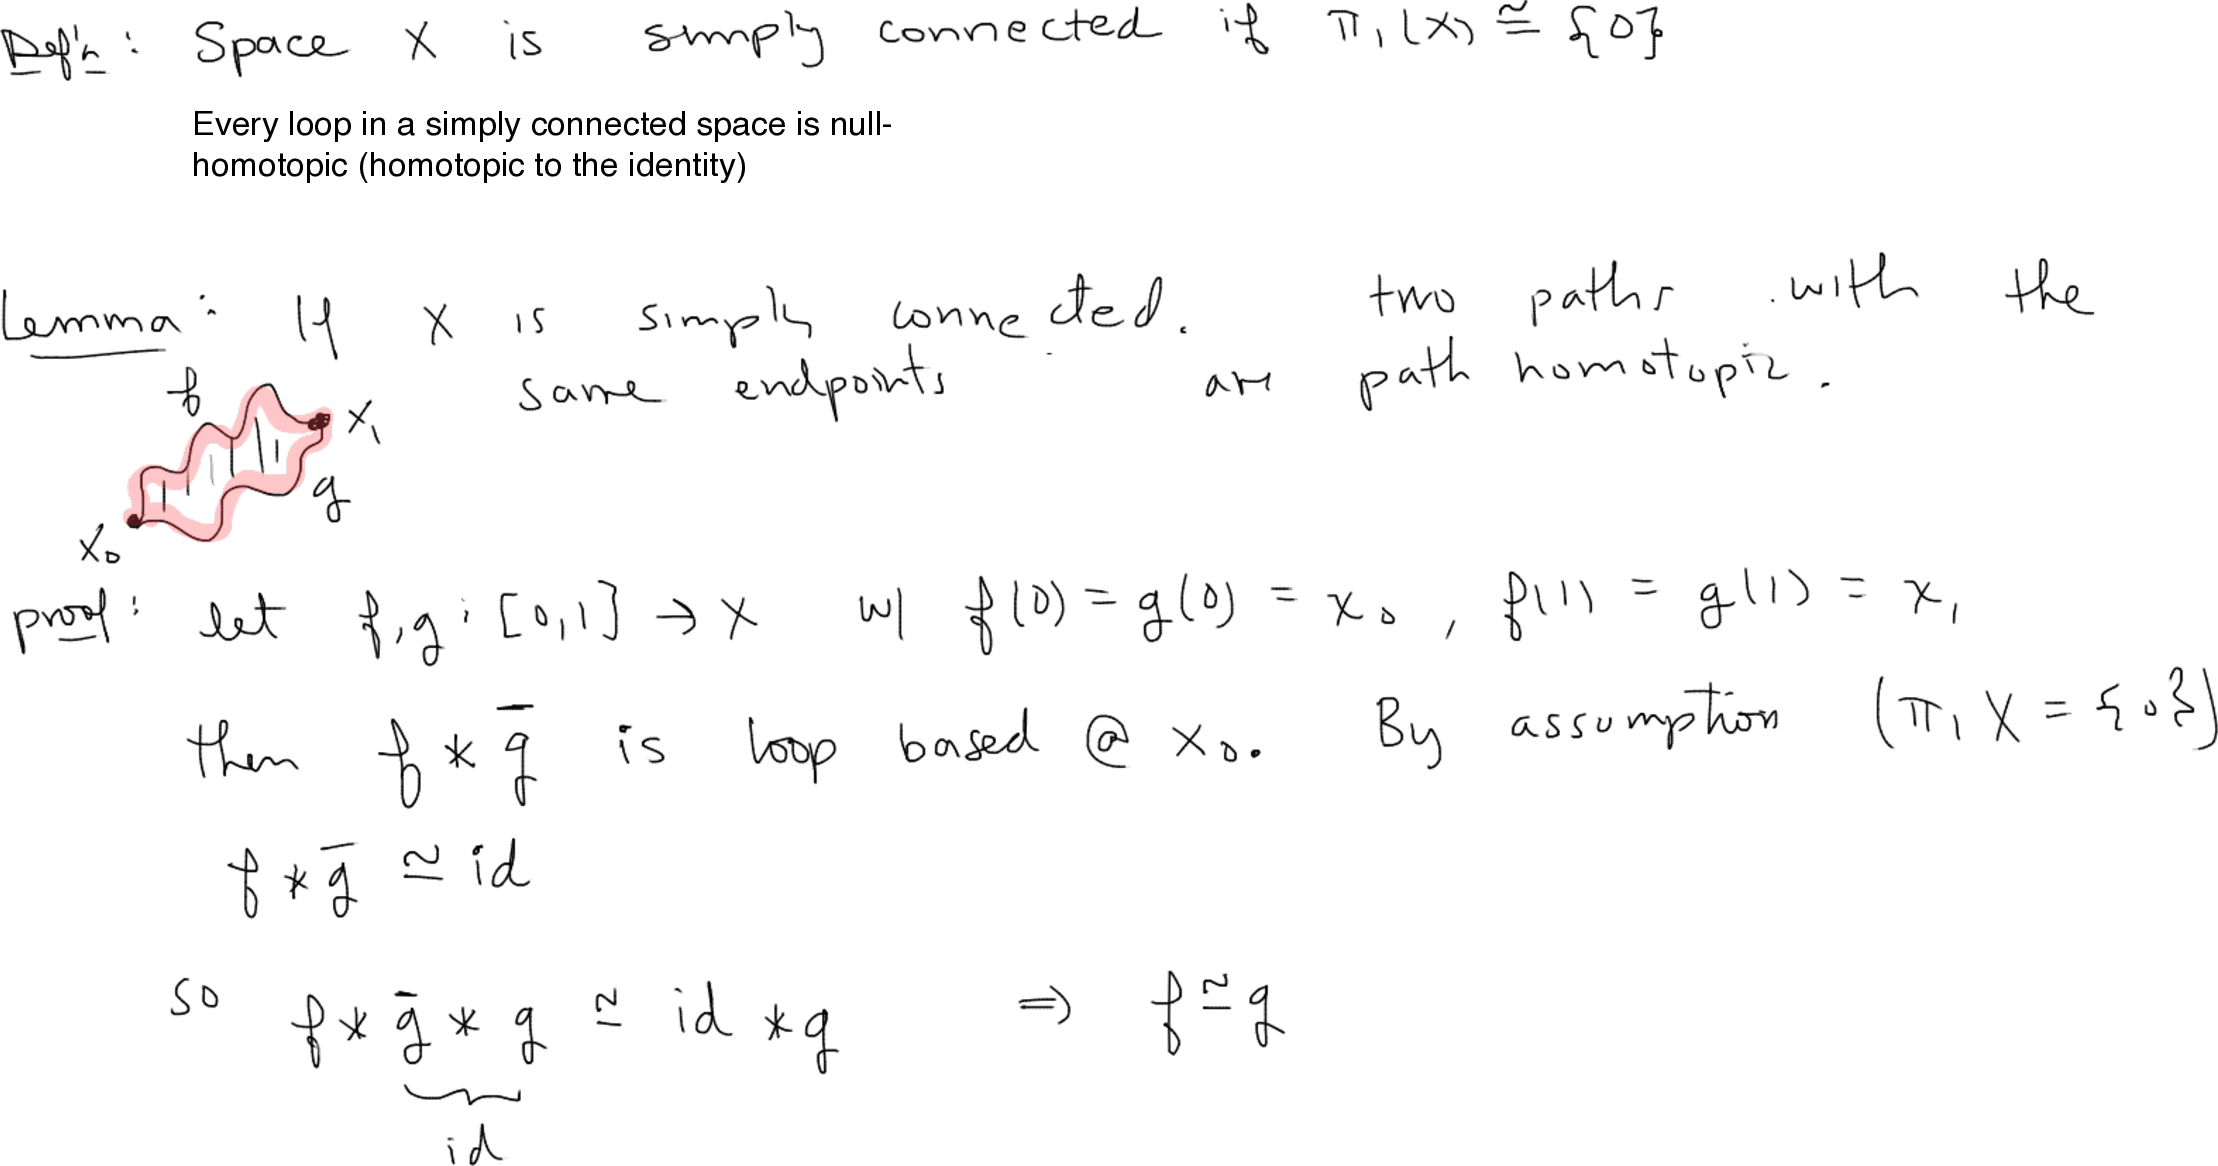 Def'n: Space X is simply connected if π₁(X) ≅ {0}
Every loop in a simply connected space is null-
homotopic (homotopic to the identity)
Lemma: If X is simply connected. two paths with the
same endpoints are path homotopic.
f
x₁
g
x₀
proof: let f,g : [0,1] → X w/ f(0) = g(0) = x₀, f(1) = g(1) = x₁
then f * ḡ is loop based @ x₀. By assumption (π₁ X = {0})
f * ḡ ≃ id
so f * ḡ * g ≃ id * g ⇒ f ≃ g
id